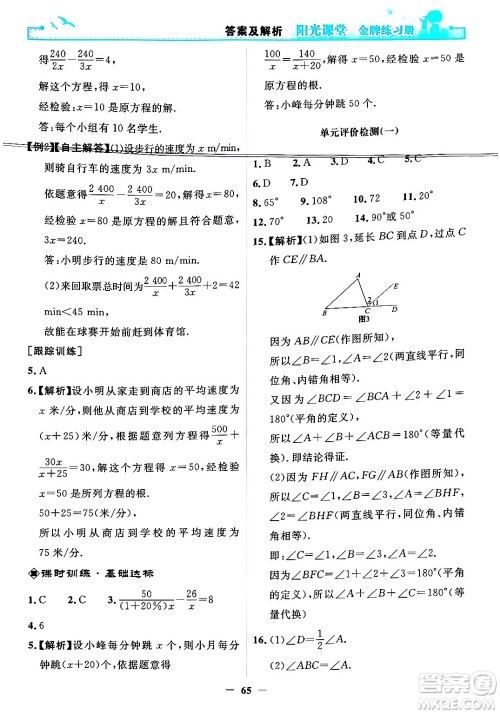 答案及解析 阳光课堂 金牌练习册
得240/x－240/3x＝4，
解这个方程，得 x＝10.
经检验：x＝10 是原方程的解.
答：每个小组有 10 名学生.
【例2】【自主解答】(1)设步行的速度为 x m/min，
则骑自行车的速度为 3x m/min，
依题意得2 400/x－2 400/3x＝20，解得 x＝80.
经检验 x＝80 是原方程的解且符合题意，
3x＝240.
答：小明步行的速度是 80 m/min.
(2)来回取票总时间为2 400/x＋2 400/3x＋2＝42
min＜45 min.
故能在球赛开始前赶到体育馆.
[跟踪训练]
5.A
6.【解析】设小明从家走到商店的平均速度为
x 米/分，则他从商店到学校的平均速度为
(x＋25)米/分，根据题意列方程得500/x＋
30x/(x＋25)＝30，解这个方程得 x＝50，经检验
x＝50 是所列方程的解.
50＋25＝75(米/分)，
所以小明从商店到学校的平均速度为
75 米/分.
课时训练·基础达标
1.C 2.C 3.50/((1＋20%)x)－26/x＝8
4.6
5.【解析】设小峰每分钟跳 x 个，则小月每分
钟跳(x＋20)个，根据题意得
100/x＝140/(x＋20)，解得 x＝50，经检验 x＝50 是原
方程的解.
答：小峰每分钟跳 50 个.
单元评价检测(一)
1.B 2.A 3.D 4.D 5.D 6.D 7.D
8.65° 9.110° 10.72 11.35°
12.70° 13.20° 14.90°或 50°
15.【解析】(1)如图 3，延长 BC 到点 D，过点 C
作 CE∥BA.
A E
B C D
图3
因为 CE∥BA(作图所知)，
所以∠B＝∠1，∠A＝∠2(两直线平行，同
位角、内错角相等).
又因为∠BCD＝∠BCA＋∠2＋∠1＝
180°(平角的定义)，
所以∠A＋∠B＋∠ACB＝180°(等量代
换).
(2)因为 FH∥AC，FG∥AB(作图所知)，
所以∠A＝∠BHF，∠BHF＝∠HFG，
∠C＝∠BFH，∠B＝∠GFC(两直线平行，
同位角、内错角相等).
因为∠BFH＋∠HFG＋∠GFC＝180°(平
角的定义)，
所以∠A＋∠B＋∠C＝180°(等量
代换).
16.(1)∠D＝1/2∠A
(2)∠D＝∠A
65